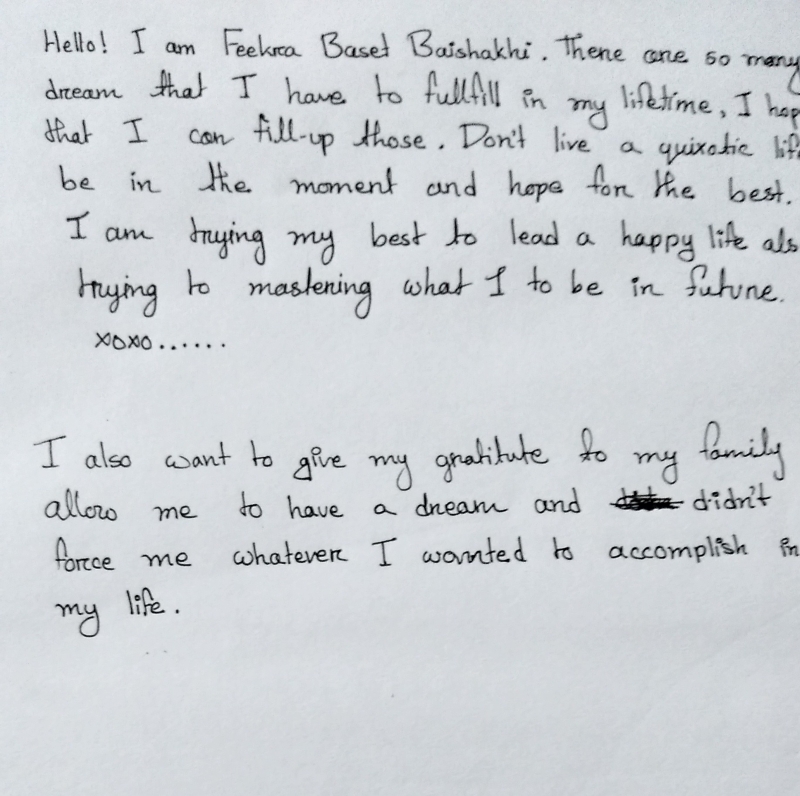 Hello! I am Feekra Baset Baishakhi. There are so many
dream that I have to fullfill in my lifetime, I hop
that I can fill-up those. Don't live a quixotic lif
be in the moment and hope for the best.
I am trying my best to lead a happy life als
trying to mastering what I to be in future.
xoxo......
I also want to give my gratitute to my family
allow me to have a dream and didn't
force me whatever I wanted to accomplish in
my life.